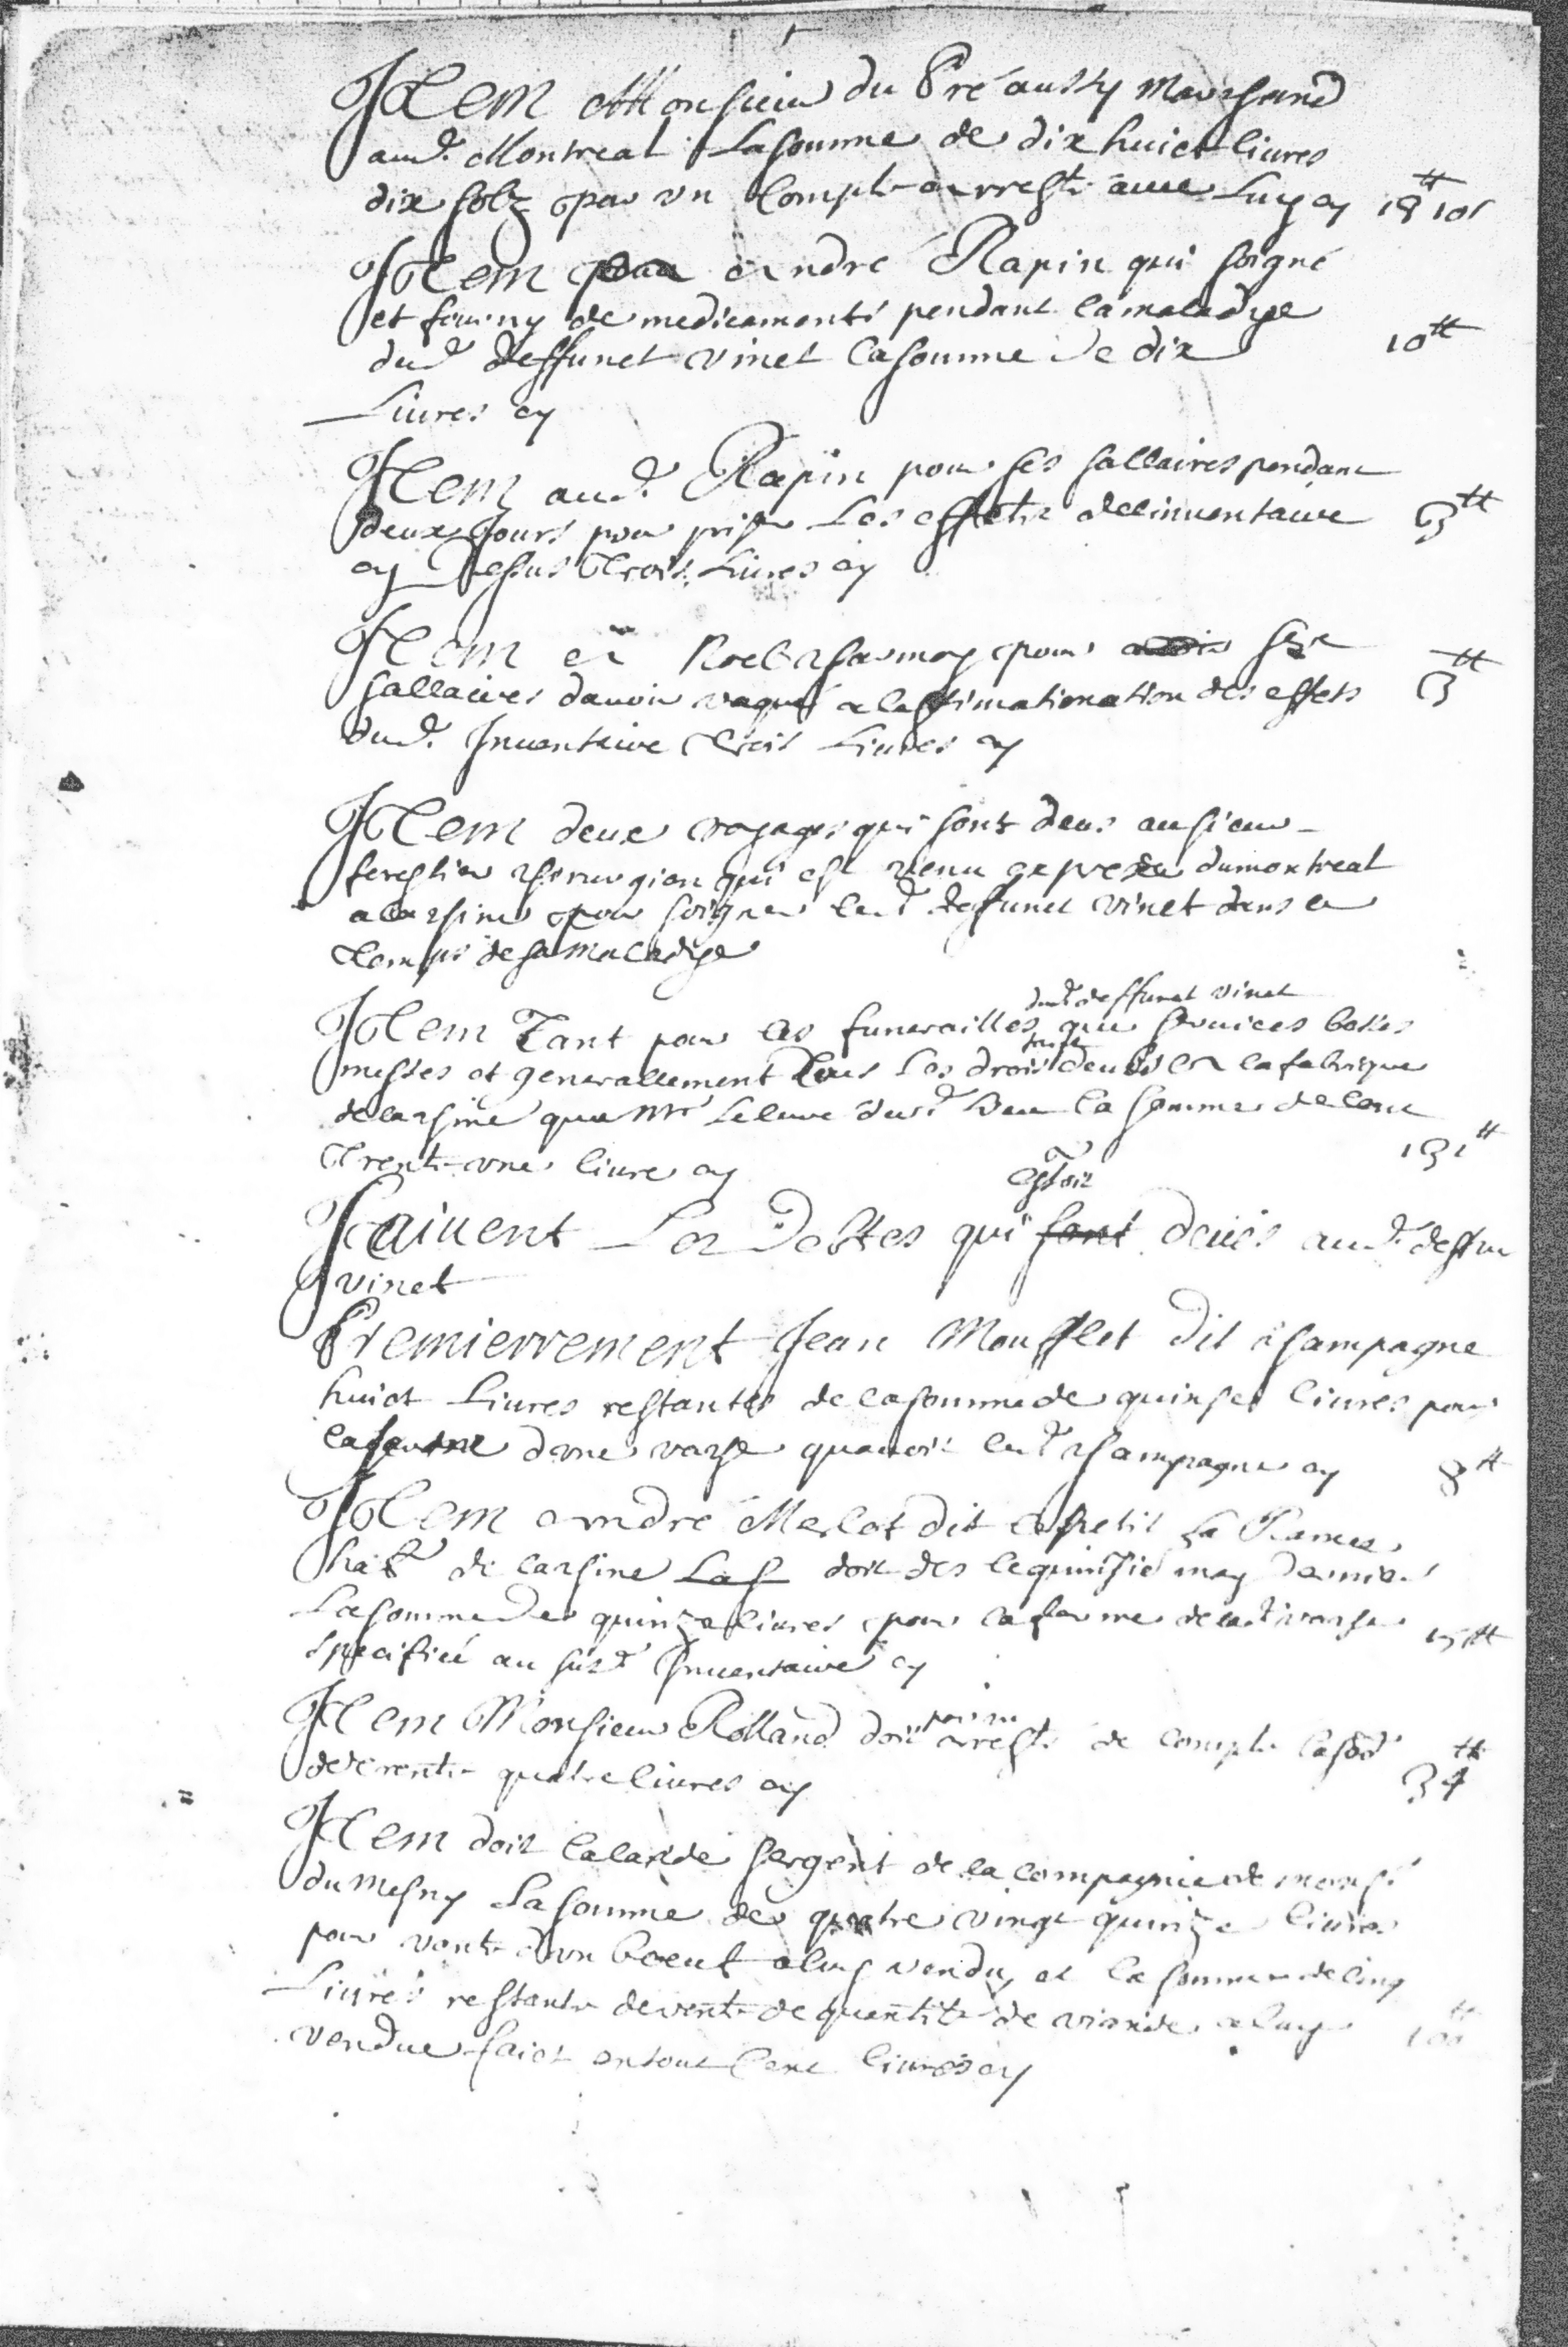 Item Monsieur du Pré aussy Marchand
aud. Montreal La somme de dix huict livres
dix solz par un Compte arresté avec Luy cy 18tt 10s
Item a André Rapin qui soigné
et fourny de medicaments pendant la maladye
dud deffunct vinet la somme de dix 10tt
Livres cy
Item aud. Rapin pour ses sallaires pendant
deux Jours pour priser Les effects de linventaire 3tt
cy Dessus Trois Livres cy
Item a Noel Chasmoy pour ses
sallaires davoir vaqué a lestimationation des effets 3tt
dud. Inventaire Trois Livres cy
Item deux voyages qui sont deus au sieur
forestier chirurgion qui est venu expres du montreal
a lachine pour soigner led deffunct vinet dans le
Temps de sa maladye
dud deffunct vinet
Item Tant pour les funerailles que services basses
messes et generallement Tous Les droits deubs a la fabrique
de lachine que Mr Le Curé dud Lieu la somme de Cent
Trente une livre cy 131tt
estoit
Suivent Les Debtes qui sont deües aud. deffun
vinet
Premierrement Jean Moufflet Dit champagne
huict Livres restantes de la somme de quinse livres pour
la dune vache quavoit led champagne cy 8tt
Item André Merlot dit le petit La Ramee
hat de lachine La s doit des le quinsie may dernier
La somme de quinze livres pour la ferme de lad vache 15tt
specifiée au susd Inventaire cy
par un
Item Monsieur Rolland doit arresté de compte la so
de trente quatre livres cy 34tt
Item doit lalande sergent de la compagnie de monsr
du Mesny La somme de quatre vingt quinze livres
pour vente dun boeuf a luy vendu, et la somme de cinq
Livres restante de vente de quantité de viande a luy 100tt
vendue faict en tout Cent livres cy